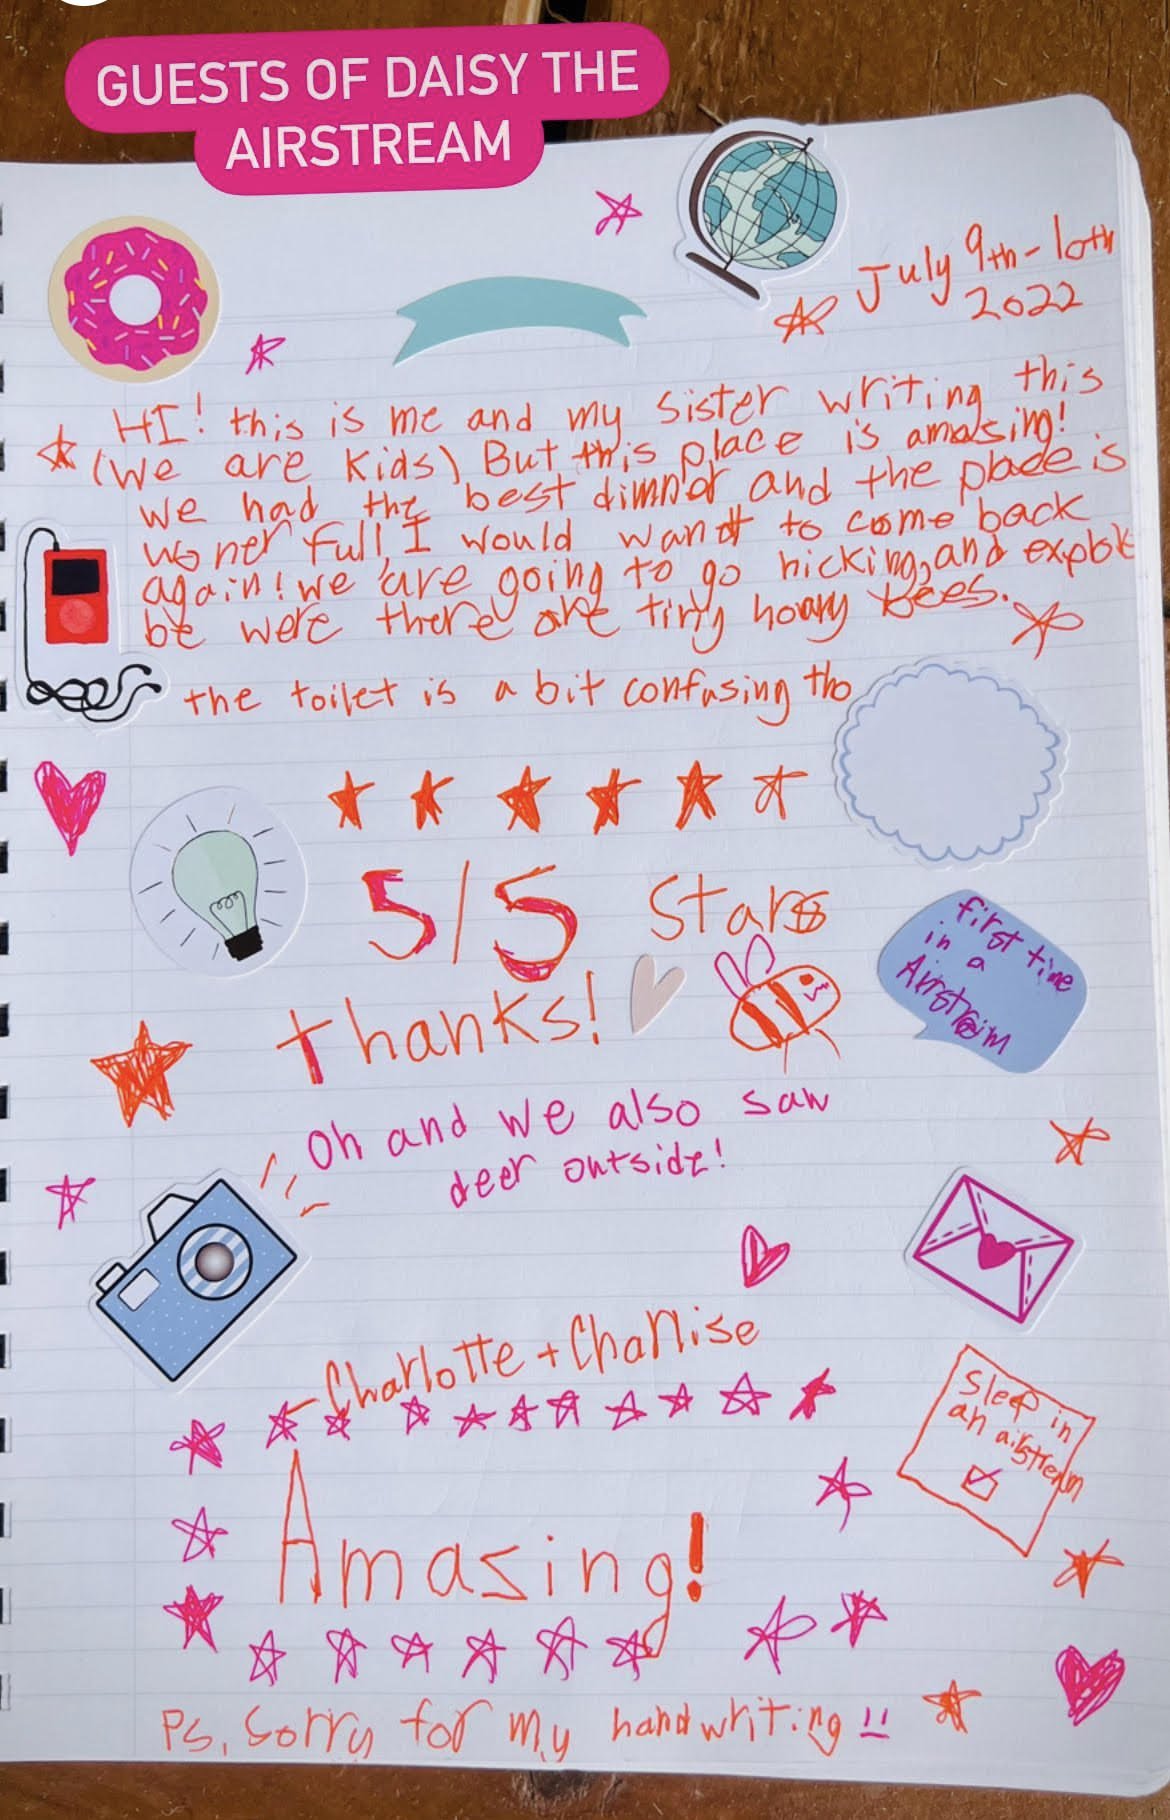 GUESTS OF DAISY THE
AIRSTREAM
July 9th-10th
2022
HI! this is me and my sister writing this
(We are kids) But this place is amasing!
we had the best dinner and the place is
woner full, I would want to come back
again! we are going to go hicking, and explore
be were there are tiny honry bees.
the toilet is a bit confusing tho
5/5 Stars
first time
in a
Airstream
thanks!
Oh and we also saw
deer outside!
-Charlotte + Charlise
Sleep in
an airstream
Amasing!
Ps, Sorry for my handwriting !!